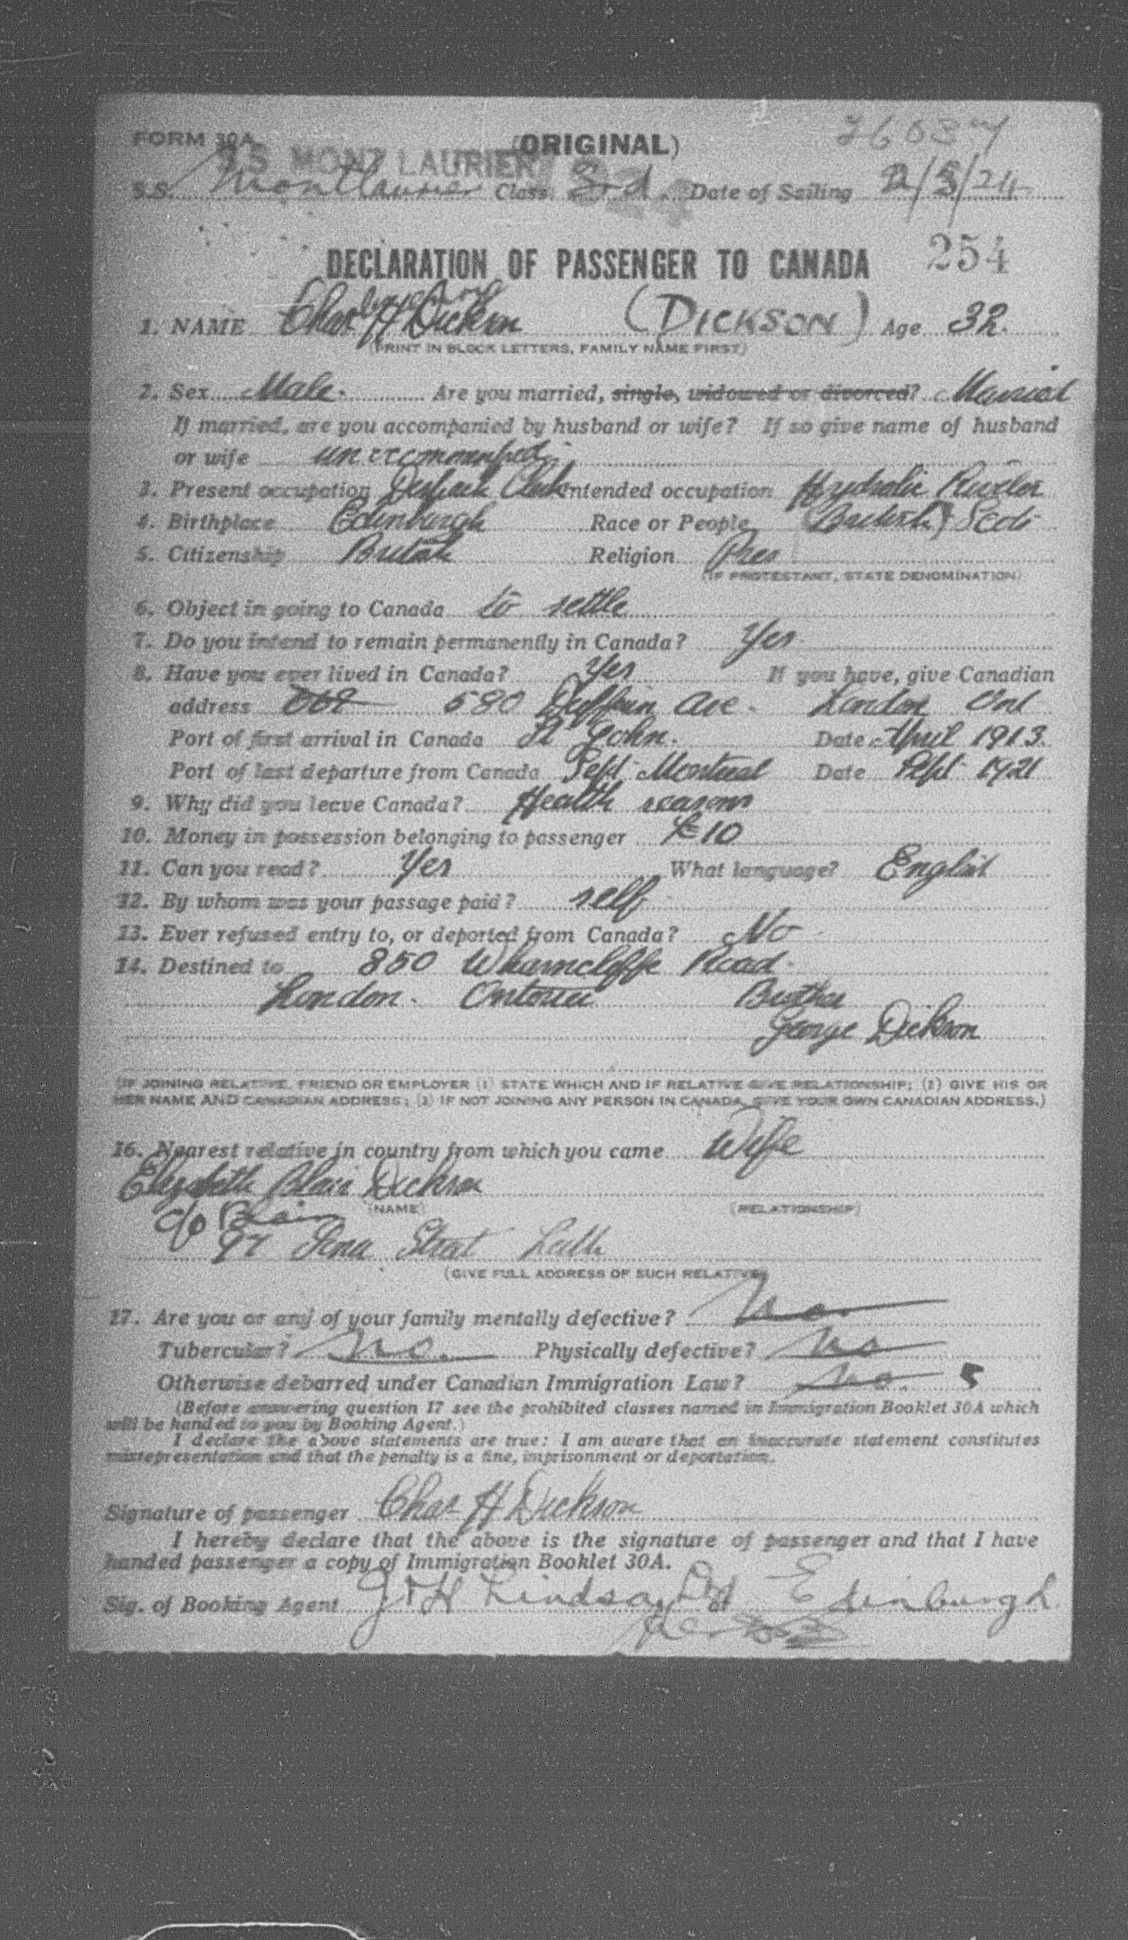 FORM 30A (ORIGINAL) 26037
SS MONT LAURIER
S.S. Montlaurier Class 3rd Date of Sailing 2/3/24
254
DECLARATION OF PASSENGER TO CANADA
1. NAME Chas H Dickson (DICKSON) Age 32.
(PRINT IN BLOCK LETTERS, FAMILY NAME FIRST)
2. Sex Male. Are you married, single, widowed or divorced? Married
If married, are you accompanied by husband or wife? If so give name of husband
or wife unaccompanied
3. Present occupation Despach Clerk Intended occupation Hydralic Riveter
4. Birthplace Edinburgh Race or People (British) Scot
5. Citizenship British Religion Pres
(IF PROTESTANT, STATE DENOMINATION)
6. Object in going to Canada to settle
7. Do you intend to remain permanently in Canada? Yes
8. Have you ever lived in Canada? Yes If you have, give Canadian
address 580 Dufferin Ave. London Ont
Port of first arrival in Canada St John. Date April 1913.
Port of last departure from Canada Sept Montreal Date Sept 1921
9. Why did you leave Canada? Health reasons
10. Money in possession belonging to passenger £10
11. Can you read? Yes What language? English
12. By whom was your passage paid? self
13. Ever refused entry to, or deported from Canada? No
14. Destined to 350 Wharncliffe Road.
London. Ontario Brother
George Dickson
(IF JOINING RELATIVE, FRIEND OR EMPLOYER (1) STATE WHICH AND IF RELATIVE GIVE RELATIONSHIP; (2) GIVE HIS OR
HER NAME AND CANADIAN ADDRESS; (3) IF NOT JOINING ANY PERSON IN CANADA, GIVE YOUR OWN CANADIAN ADDRESS.)
16. Nearest relative in country from which you came Wife
Elizabeth Blair Dickson
(NAME) (RELATIONSHIP)
c/o Blair
97 Iona Street Leith
(GIVE FULL ADDRESS OF SUCH RELATIVE)
17. Are you or any of your family mentally defective? No
Tubercular? No. Physically defective? No
Otherwise debarred under Canadian Immigration Law? No. 5
(Before answering question 17 see the prohibited classes named in Immigration Booklet 30A which
will be handed to you by Booking Agent.)
I declare the above statements are true: I am aware that an inaccurate statement constitutes
misrepresentation and that the penalty is a fine, imprisonment or deportation.
Signature of passenger Chas H Dickson
I hereby declare that the above is the signature of passenger and that I have
handed passenger a copy of Immigration Booklet 30A.
Sig. of Booking Agent J & H Lindsay Ltd at Edinburgh